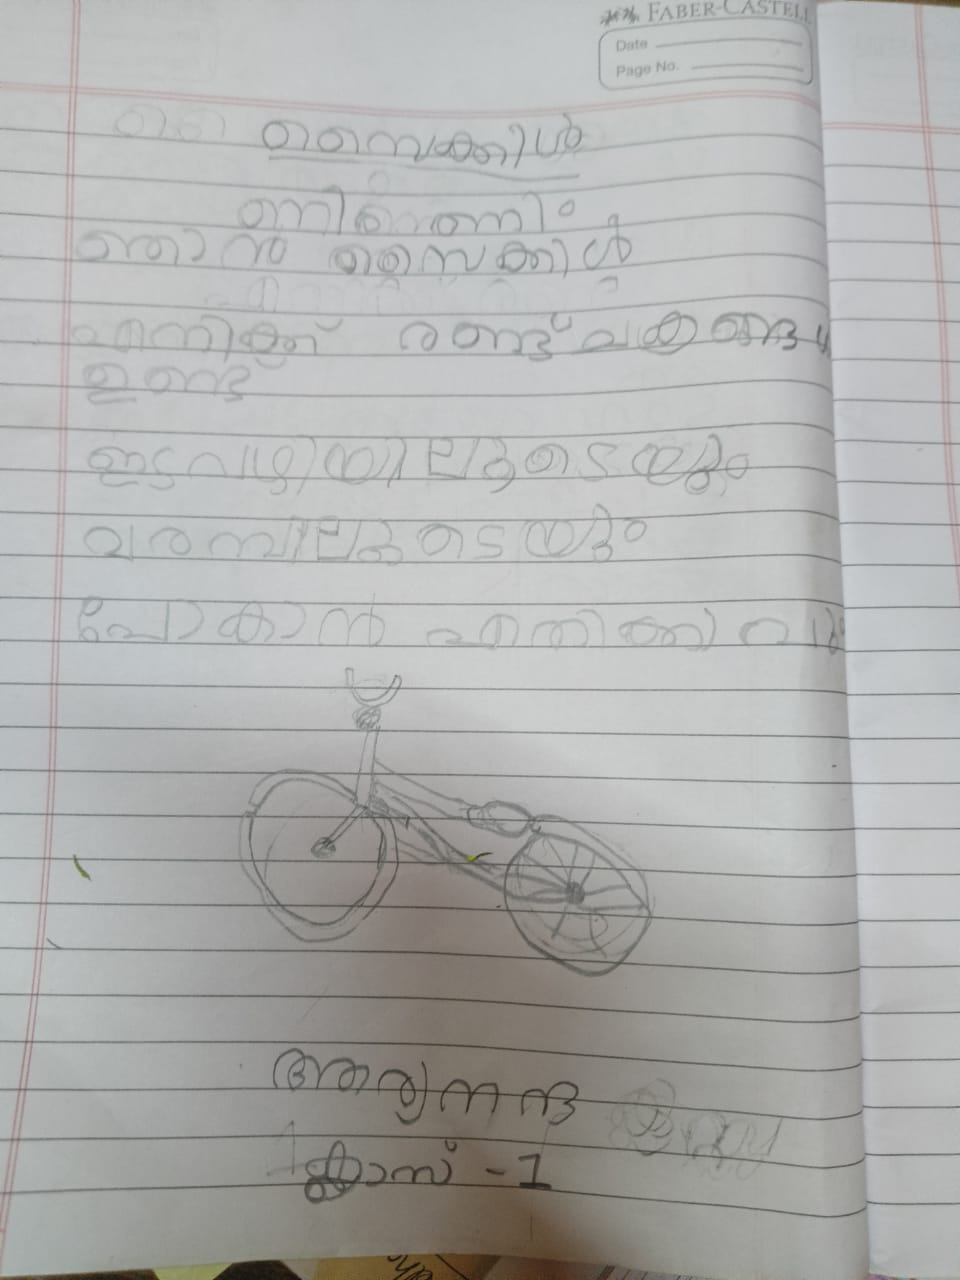 FABER-CASTELL
Date
Page No.
സൈക്കിൾ
ഞാൻ സൈക്കിൾ
എനിക്ക് രണ്ട് ചക്രങ്ങൾ
ഉണ്ട്
ഇടവഴിയിലുടെയും
വരമ്പിലുടെയും
പോകാൻ എനിക്ക്
ആര്യനന്ദ
ക്ലാസ് -1